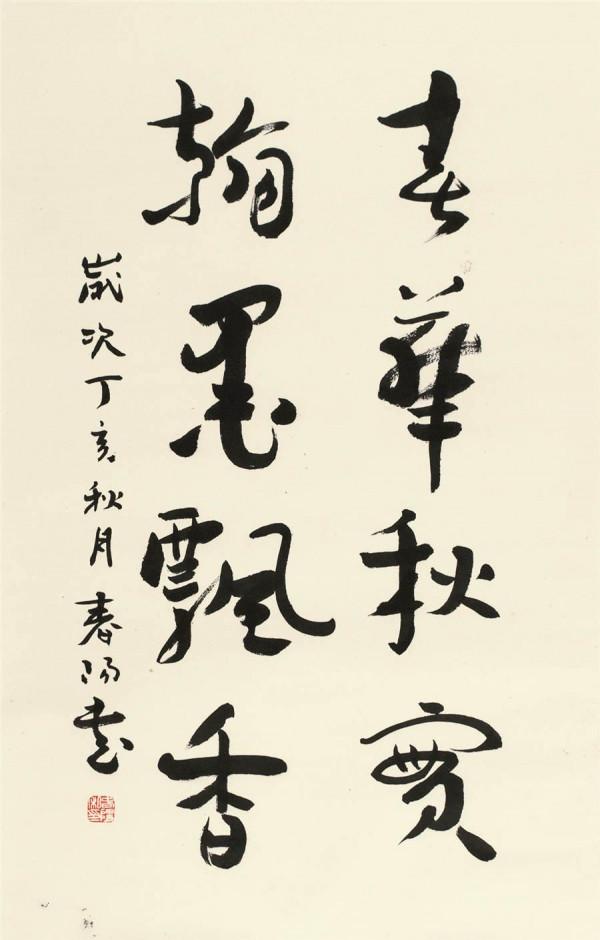 春華秋實
翰墨飄香
歲次丁亥秋月春陽書